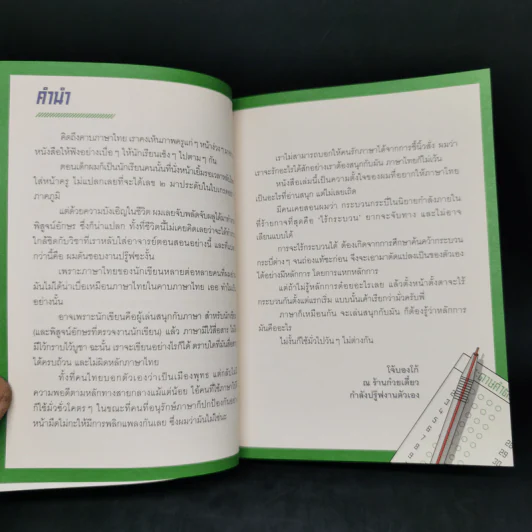 คำนำ
คิดถึงคาบภาษาไทย เราคงเห็นภาพครูแก่ๆ หน้าง่วงๆ
หนังสือให้ฟังอย่างเบื่อๆ ให้นักเรียนเซ็งๆ ไปตามๆ กัน
ตอนเด็กผมก็เป็นนักเรียนคนนั้นที่นั่งหน้าเยิ้ม
ใส่หน้าครู ไม่แปลกเลยที่จะได้เลข ๒ มาประดับในใบเกรด
ภาคภูมิ
แต่ด้วยความบังเอิญในชีวิต ผมเลยจับพลัดจับผลูได้มา
พิสูจน์อักษร ซึ่งก็น่าแปลก ทั้งที่ชีวิตนี้ไม่เคยคิดเลยว่าจะได้
ใกล้ชิดกับวิชาที่เราหลับใส่อาจารย์ตอนสอนอย่างนี้ และที่
กว่านี้คือ ผมดันชอบงานปรู๊ฟซะงั้น
เพราะภาษาไทยของนักเขียนหลายต่อหลายคนที่
มันไม่ได้น่าเบื่อเหมือนภาษาไทยในคาบภาษาไทย เออ ทำไม
อย่างนั้น
อาจเพราะนักเขียนคือผู้เล่นสนุกกับภาษา สำหรับ
(และพิสูจน์อักษรที่ตรวจงานนักเขียน) แล้ว ภาษามีไว้สื่อสาร
มีไว้กราบไว้บูชา ฉะนั้น เราจะเขียนอย่างไรก็ได้ ตราบใดที่มันสื่อ
ได้ครบถ้วน และไม่ผิดหลักภาษาไทย
ทั้งที่คนไทยบอกตัวเองว่าเป็นเมืองพุทธ แต่กลับ
ความพอดีตามหลักทางสายกลางแม้แต่น้อย ใช้คนที่ใช้ภาษา
ก็ใช้มั่วซั่วโคตรๆ ในขณะที่คนที่อนุรักษ์ภาษาก็ปกป้องกัน
หน้ามืดไม่กะให้มีการพลิกแพลงกันเลย ซึ่งผมว่ามันไม่ใช่
เราไม่สามารถบอกให้คนรักภาษาได้จากการชี้นิ้วสั่ง ผมว่า
เราจะรักอะไรได้สักอย่างเราต้องสนุกกับมัน ภาษาไทยก็ไม่เว้น
หนังสือเล่มนี้เป็นความตั้งใจของผมที่อยากให้ภาษาไทย
เป็นอะไรที่อ่านสนุก แต่ไม่เลยเถิด
มีคนเคยสอนผมว่า กระบวนกระบี่ในนิยายกำลังภายใน
ที่ร้ายกาจที่สุดคือ 'ไร้กระบวน' ยากจะจับทาง และไม่อาจ
เลียนแบบได้
การจะไร้กระบวนได้ ต้องเกิดจากการศึกษาค้นคว้ากระบวน
กระบี่ต่างๆ จนถ่องแท้ซะก่อน จึงจะเอามาดัดแปลงเป็นของตัวเอง
ได้อย่างมีหลักการ โดยการแหกหลักการ
แต่ถ้าไม่รู้หลักการห้อยอะไรเลย แล้วตั้งหน้าตั้งตาจะไร้
กระบวนกันตั้งแต่แรกเริ่ม แบบนั้นเค้าเรียกว่ามั่วครับพี่
ภาษาก็เหมือนกัน จะเล่นสนุกกับมัน ก็ต้องรู้ว่าหลักการ
มันคืออะไร
ไม่งั้นก็ใช้มั่วไปวันๆ ไม่ต่างกัน
โจ้บองโก้
ณ ร้านก๋วยเตี๋ยว
กำลังปรู๊ฟงานตัวเอง